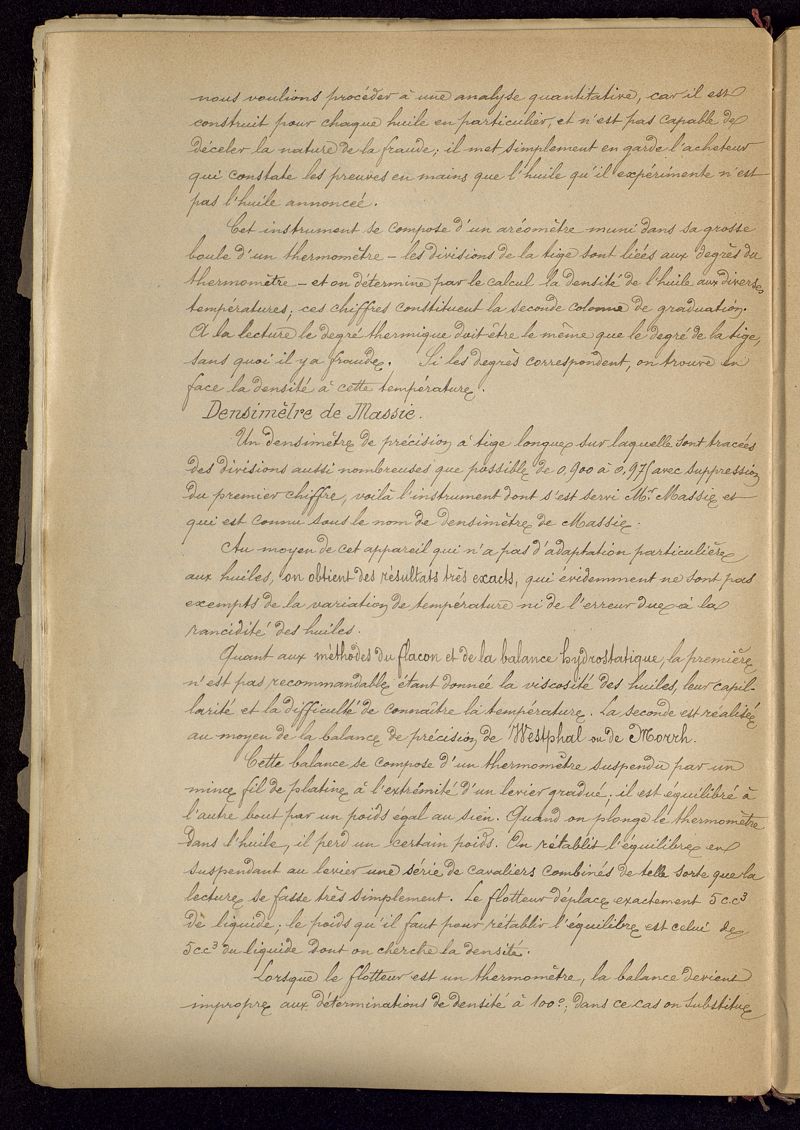 nous voulions procéder à une analyse quantitative, car il est
construit pour chaque huile en particulier, et n'est pas capable de
déceler la nature de la fraude; il met simplement en garde l'acheteur
qui constate les preuves en mains que l'huile qu'il expérimente n'est
pas l'huile annoncée.
Cet instrument se compose d'un aréomètre muni dans sa grosse
boule d'un thermomètre – les divisions de la tige sont liées aux degrés du
thermomètre – et on détermine par le calcul la densité de l'huile aux diverses
températures; ces chiffres constituent la seconde colonne de graduation.
A la lecture le degré thermique doit être le même que le degré de la tige,
sans quoi il y a fraude. Si les degrés correspondent, on trouve en
face la densité à cette température.
Densimètre de Massie.
Un densimètre de précision à tige longue sur laquelle sont tracées
des divisions aussi nombreuses que possible de 0,900 à 0,975 avec suppression
du premier chiffre, voilà l'instrument dont s'est servi Mr Massie et
qui est connu sous le nom de densimètre de Massie.
Au moyen de cet appareil qui n'a pas d'adaptation particulière
aux huiles, on obtient des résultats très exacts, qui évidemment ne sont pas
exempts de la variation de température ni de l'erreur due à la
rancidité des huiles.
Quant aux méthodes du flacon et de la balance hydrostatique, la première
n'est pas recommandable étant donnée la viscosité des huiles, leur capil-
larité et la difficulté de connaître la température. La seconde est réalisée
au moyen de la balance de précision de Westphal ou de Morrh.
Cette balance se compose d'un thermomètre suspendu par un
mince fil de platine à l'extrémité d'un levier gradué; il est équilibré à
l'autre bout par un poids égal au sien. Quand on plonge le thermomètre
dans l'huile, il perd un certain poids. On rétablit l'équilibre en
suspendant au levier une série de cavaliers combinés de telle sorte que la
lecture se fasse très simplement. Le flotteur déplace exactement 5 c.c³
de liquide; le poids qu'il faut pour rétablir l'équilibre est celui de
5cc³ du liquide dont on cherche la densité.
Lorsque le flotteur est un thermomètre, la balance devient
impropre aux déterminations de densité à 100°; dans ce cas on substitue